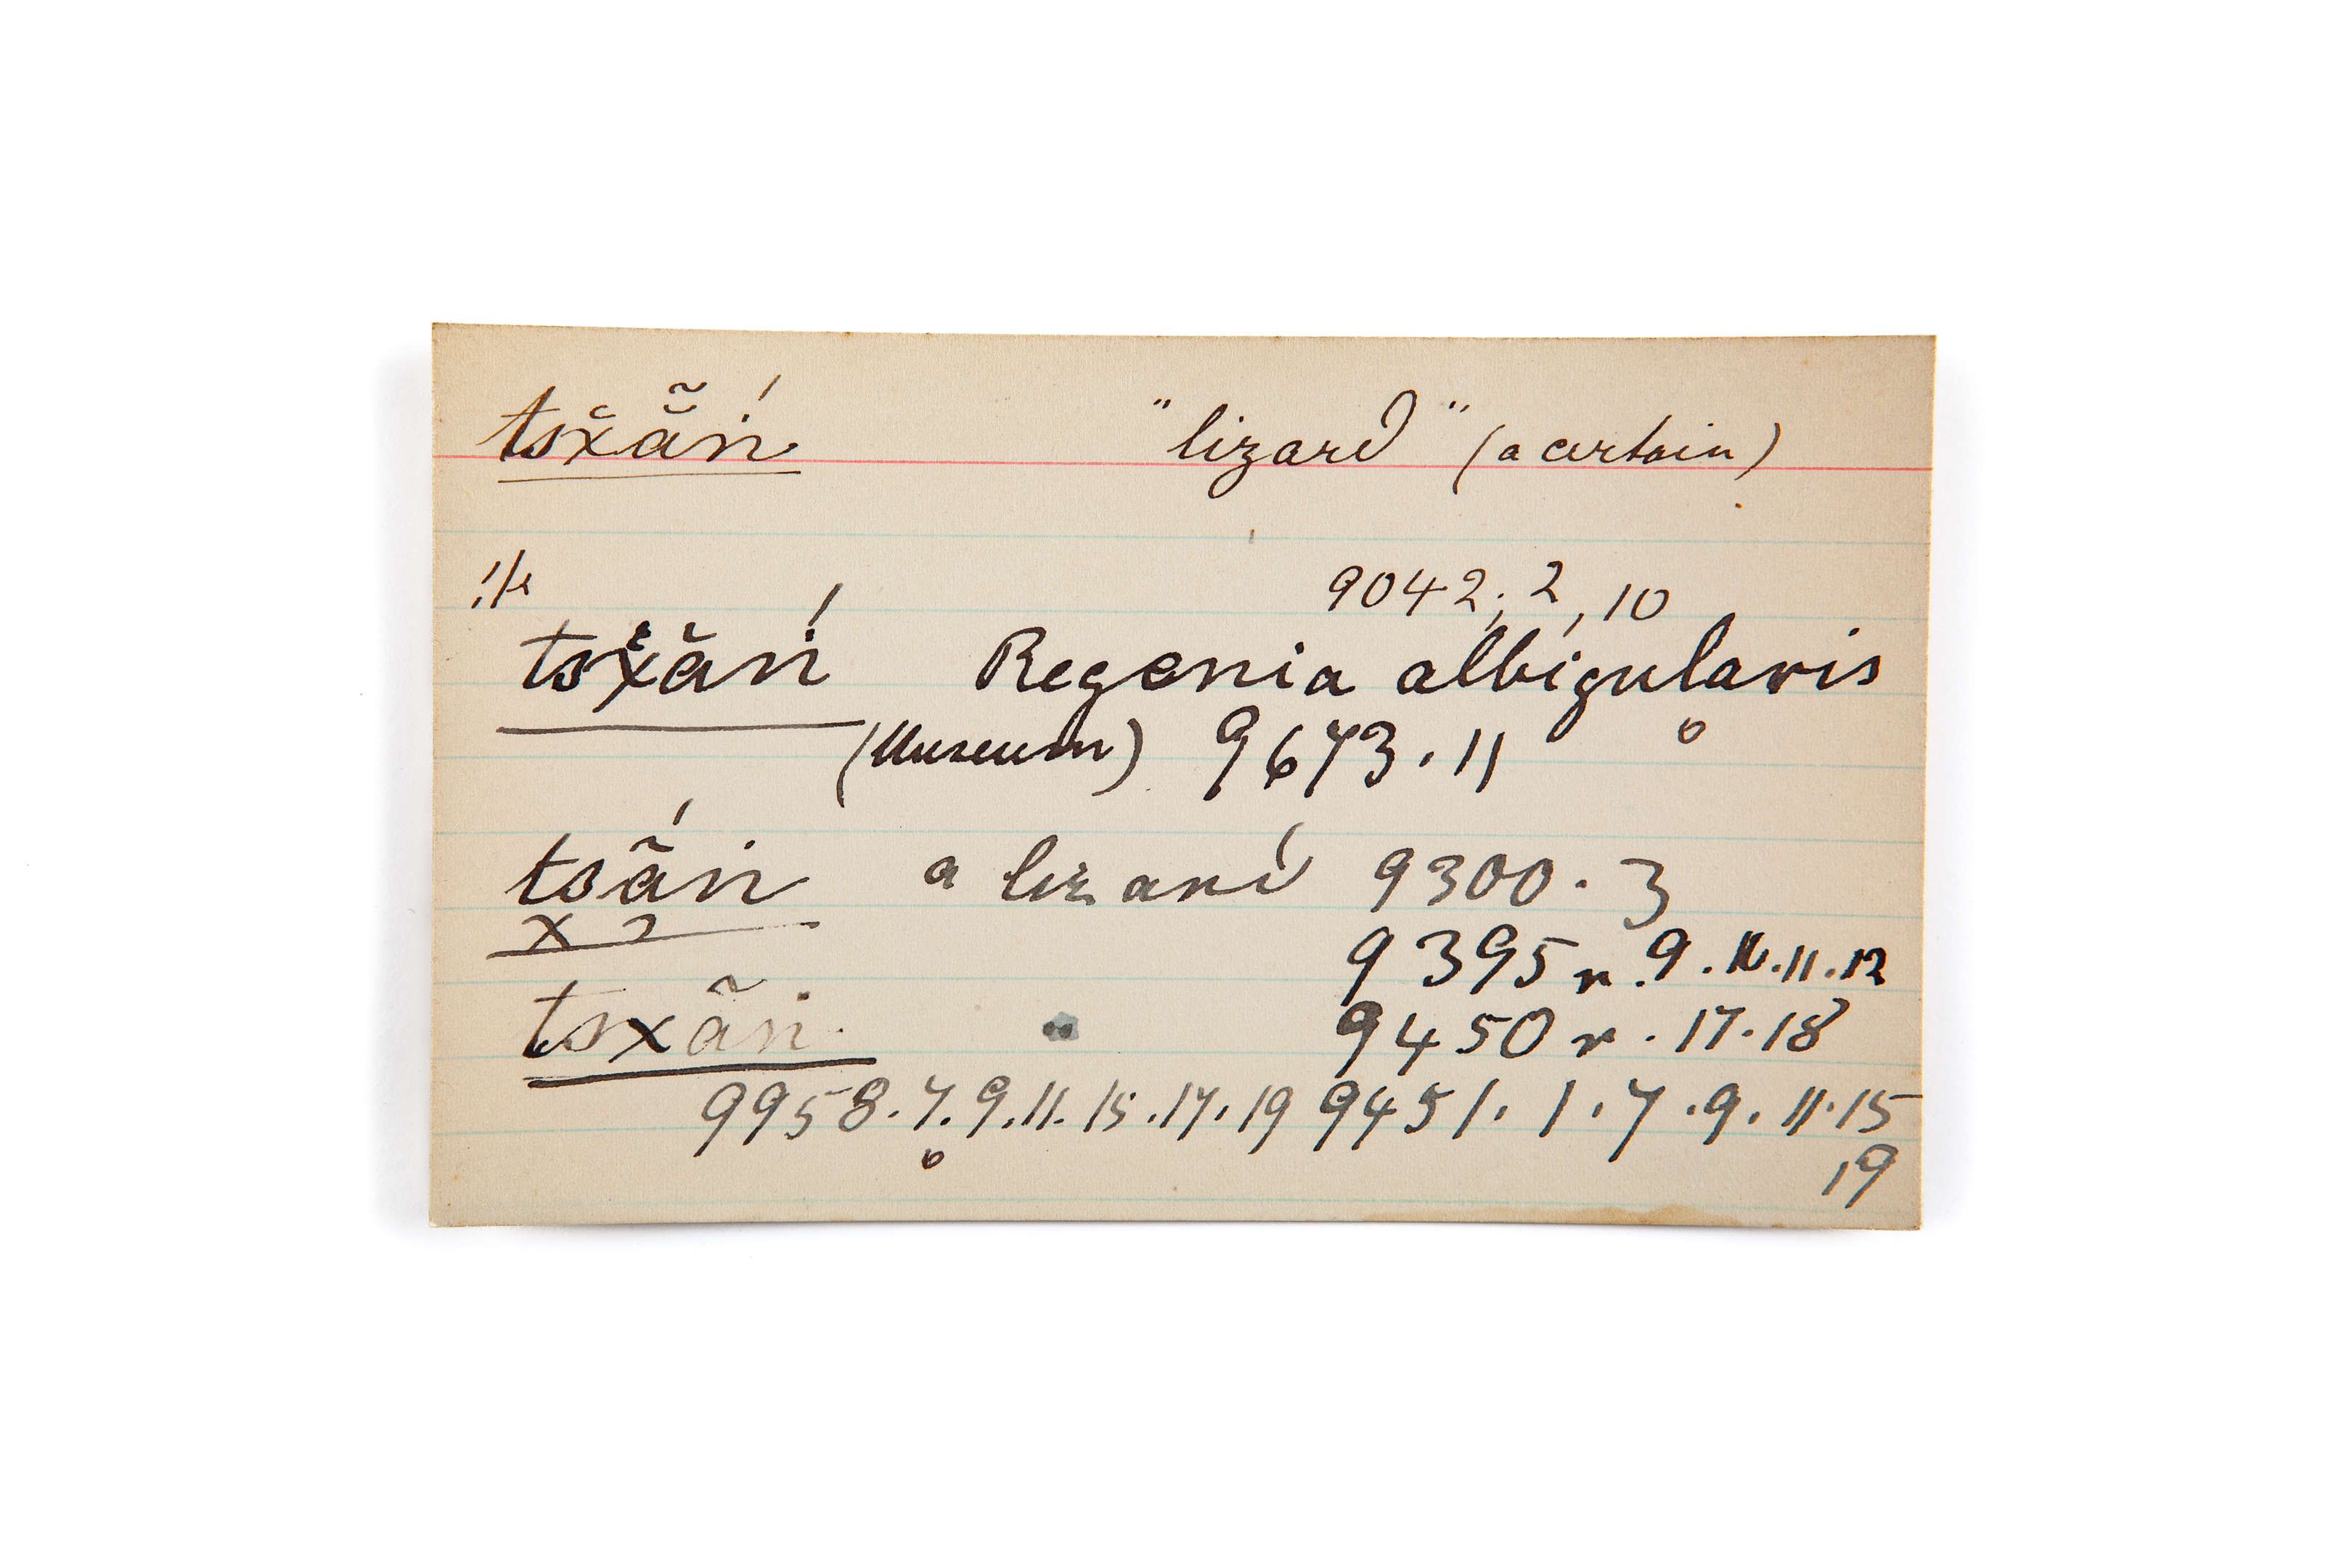 tsx̆ã̆ń "lizard" (a certain)
!k 9042; 2, 10
tsx̆ăń Regenia albigularis
(Museum) 9673. 11
tsã́n a lizard 9300. 3
x ɔ 9395 r. 9. 10. 11. 12
tsxãn " 9450 r. 17. 18
9958. 7. 9. 11. 15. 17. 19 9451. 1. 7. 9. 11. 15
19